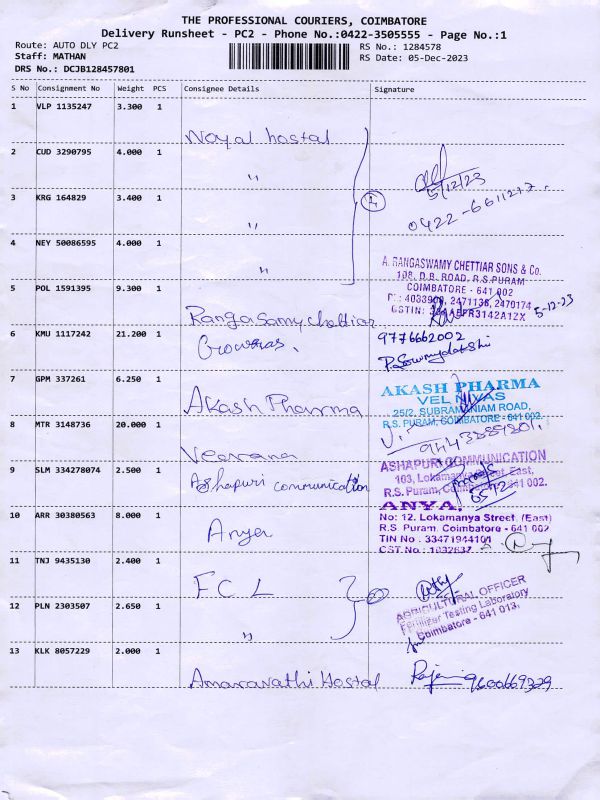 THE PROFESSIONAL COURIERS, COIMBATORE
Delivery Runsheet - PC2 - Phone No.:0422-3505555 - Page No.:1
Route: AUTO DLY PC2
RS No.: 1284578
Staff: MATHAN
RS Date: 05-Dec-2023
DRS No.: DCJB128457801
S No Consignment No Weight PCS Consignee Details Signature
1 VLP 1135247 3.300 1
Noyal hostal
2 CUD 3290795 4.000 1
"
5/12/23
3 KRG 164829 3.400 1
0422-6611217
"
4 NEY 50086595 4.000 1
"
A. RANGASWAMY CHETTIAR SONS & Co.
108, D.B. ROAD, R.S.PURAM
COIMBATORE - 641 002
5 POL 1591395 9.300 1
2471138, 2479174
5-12-23
Ranga Samy Chettiar
6 KMU 1117242 21.200 1
9776662002
P. Sowmydakshi
7 GPM 337261 6.250 1
AKASH PHARMA
VEL NIVAS
25/2, SUBRAMANIAM ROAD,
R.S. PURAM, COIMBATORE - 641 002.
Akash Pharma
8 MTR 3148736 20.000 1
Veerana
ASHAPURI COMMUNICATION
103, Lokamanya Street, East,
R.S. Puram, Coimbatore - 641 002.
9 SLM 334278074 2.500 1
Ashapuri communication
ANYA
10 ARR 30380563 8.000 1
No: 12. Lokamanya Street (East)
R.S. Puram, Coimbatore - 641 002
TIN No : 33471944101
CST No : 1032637
Anya
11 TNJ 9435130 2.400 1
FCL
AGRICULTURAL OFFICER
Fertilizer Testing Laboratory
Coimbatore - 641 013.
12 PLN 2303507 2.650 1
"
13 KLK 8057229 2.000 1
Amaravathi Hostal
Rajeni 9600669329